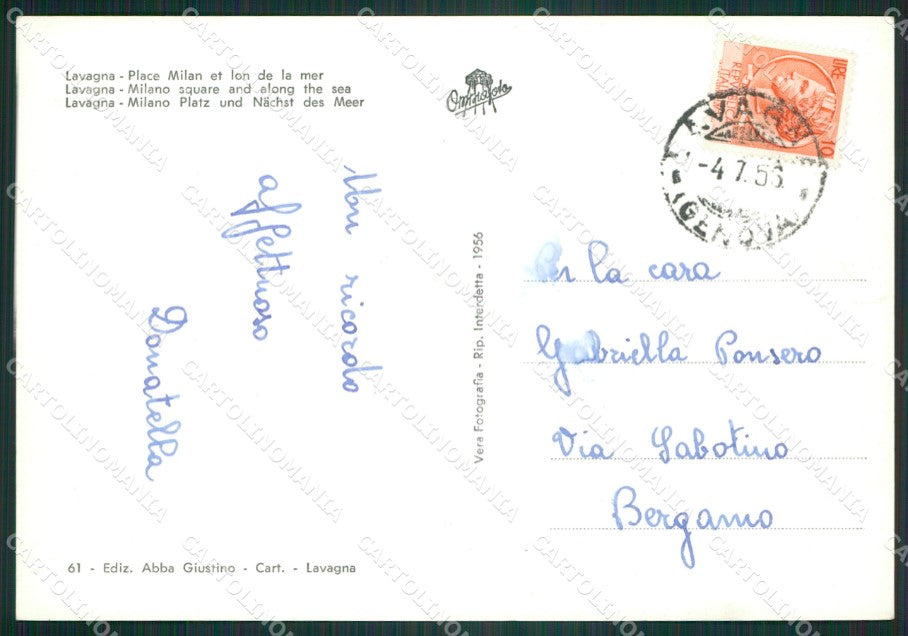 Lavagna - Place Milan et lon de la mer
Lavagna - Milano square and along the sea
Lavagna - Milano Platz und Nächst des Meer
Omniafoto
LIRE 10
REPUBBLICA
ITALIANA
LAVAGNA
-4.7.56
(GENOVA)
Un ricordo
affettuoso
Donatella
Vera Fotografia - Rip. Interdetta - 1956
Per la cara
Gabriella Ponsero
Via Sabotino
Bergamo
61 - Ediz. Abba Giustino - Cart. - Lavagna
CARTOLINOMANIA